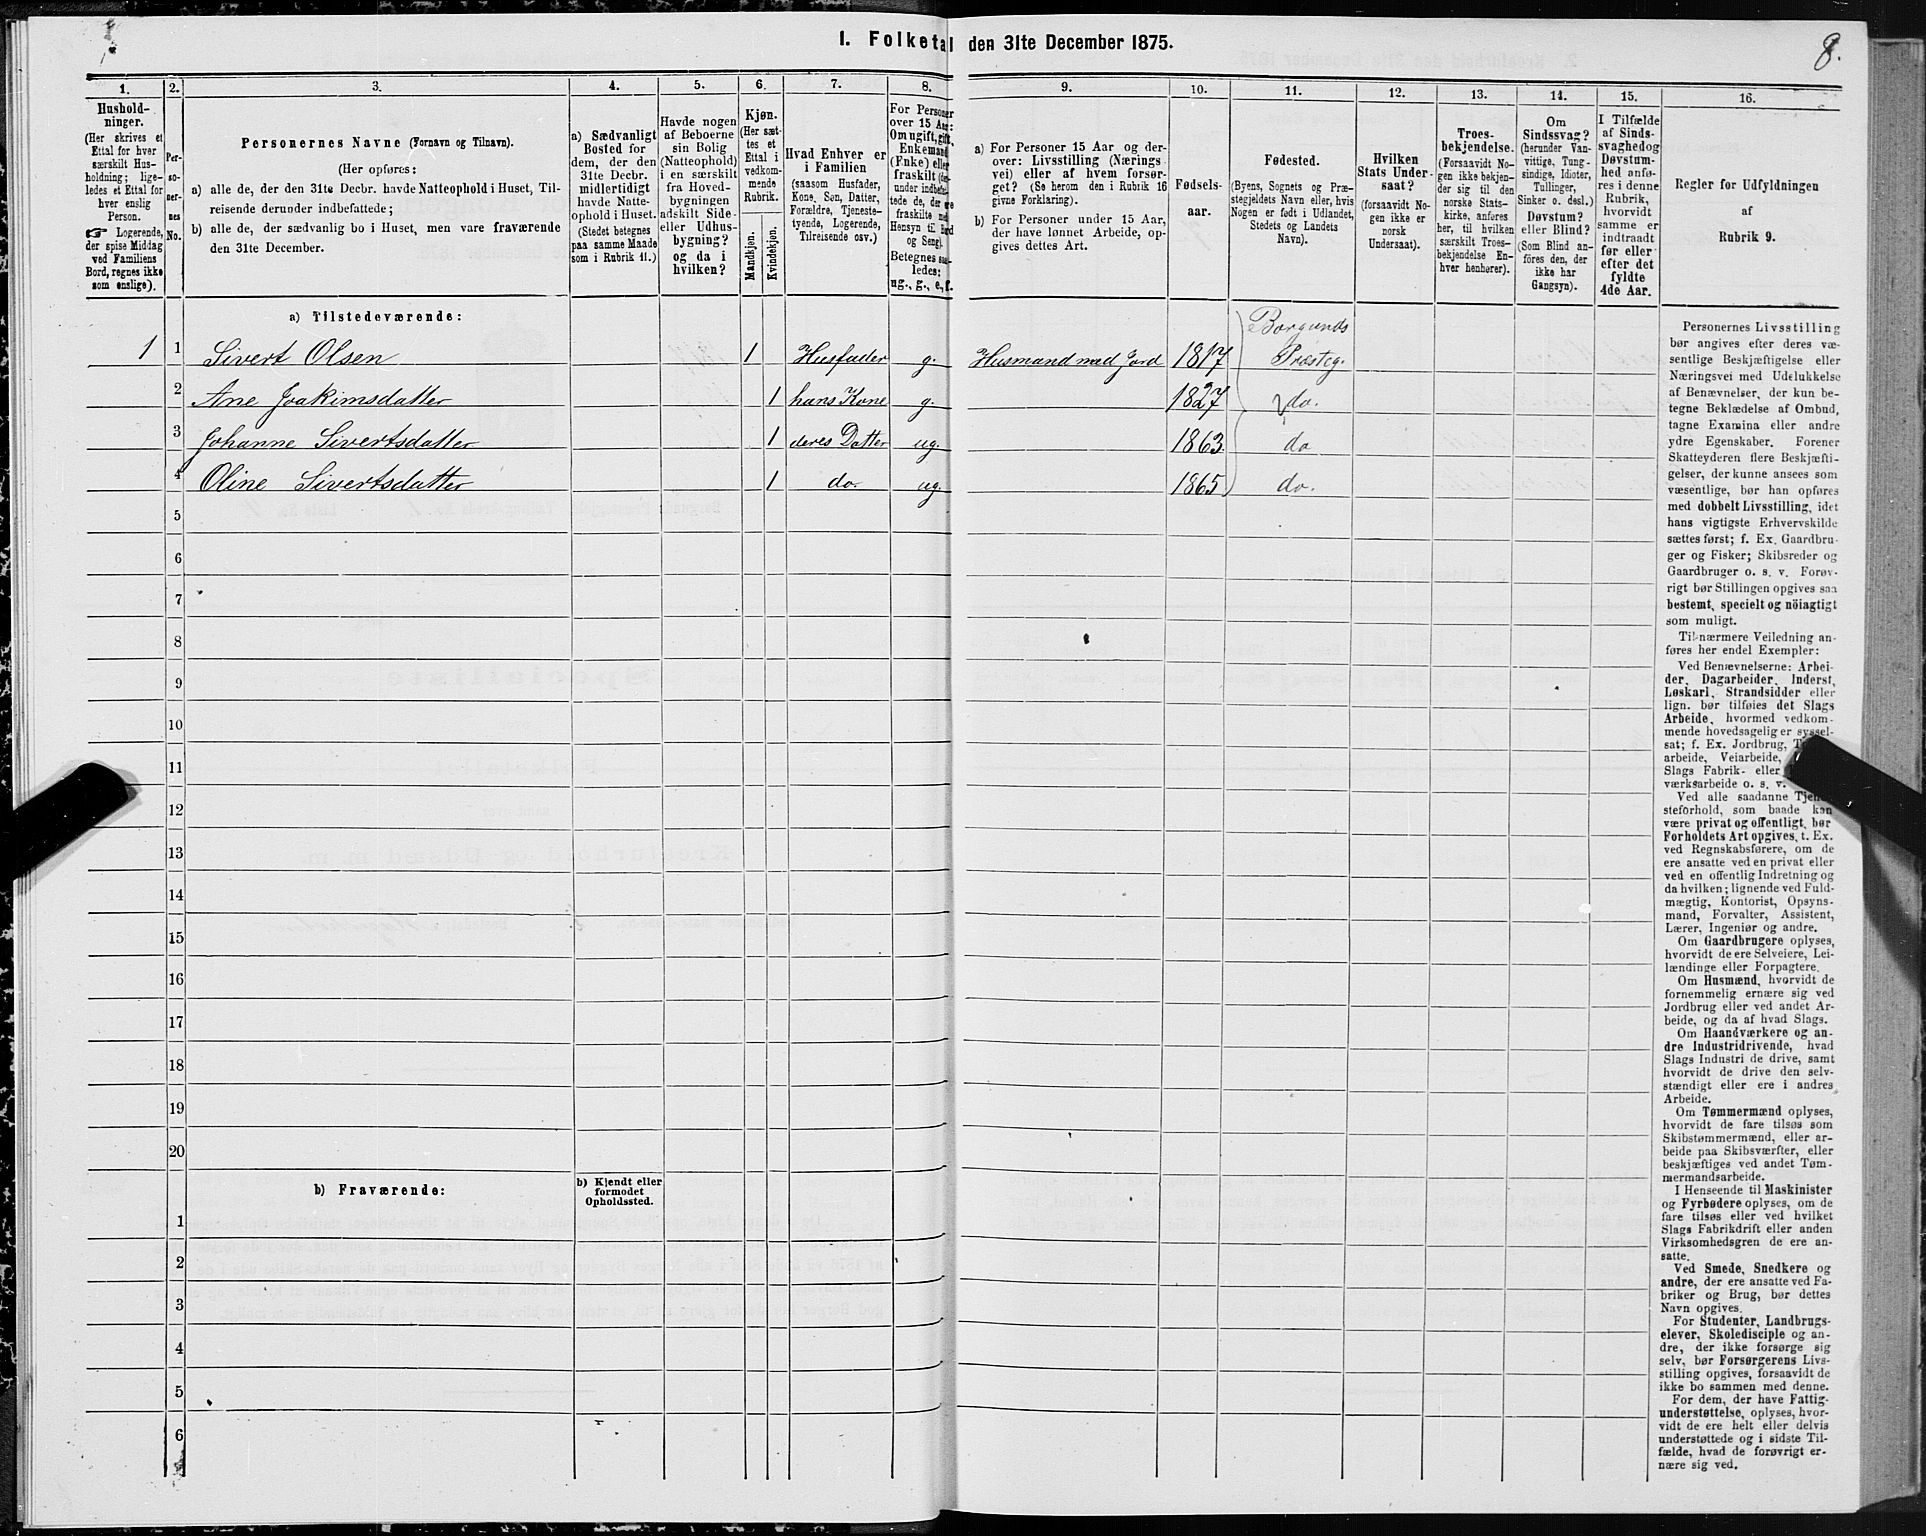 I. Folketal den 31te December 1875.
8.
1.
2.
3.
4.
5.
6.
7.
8.
9.
10.
11.
12.
13.
14.
15.
16.
Hushold-
ninger.
(Her skrives et
Ettal for hver
særskilt Hus-
holdning; lige-
ledes et Ettal for
hver enslig
Person.
☞ Logerende,
der spise Middag
ved Familiens
Bord, regnes ikke
som enslige).
Per-
so-
ner-
nes
No.
Personernes Navne (Fornavn og Tilnavn).
(Her opføres:
a) alle de, der den 31te Decbr. havde Natteophold i Huset, Til-
reisende derunder indbefattede;
b) alle de, der sædvanlig bo i Huset, men vare fraværende
den 31te December.
a) Sædvanligt
Bosted for
dem, der den
31te Decbr.
midlertidigt
havde Natte-
ophold i Huset.
(Stedet betegnes
paa samme Maade
som i Rubrik 11.)
Havde nogen
af Beboerne
sin Bolig
(Natteophold)
i en særskilt
fra Hoved-
bygningen
adskilt Side-
eller Udhus-
bygning?
og da i
hvilken?
Kjøn.
(Her sæt-
tes et
Ettal i
vedkom-
mende
Rubrik.
Mandkjøn.
Kvindekjøn.
Hvad Enhver er
i Familien
(saasom Husfader,
Kone, Søn, Datter,
Forældre, Tjeneste-
tyende, Logerende,
Tilreisende osv.)
For Personer
over 15 Aar:
Om ugift, gift,
Enkemand
(Enke) eller
fraskilt
under indbefat-
tede de, der ere
fraskilte med
Hensyn til Bord
og Seng).
Betegnes saa-
ledes:
ug., g., e., f.
a) For Personer 15 Aar og der-
over: Livsstilling (Nærings-
vei) eller af hvem forsør-
get? (Se herom den i Rubrik 16
givne Forklaring).
b) For Personer under 15 Aar,
der have lønnet Arbeide, op-
gives dettes Art.
Fødsels-
aar.
Fødested.
(Byens, Sognets og Præ-
stegjeldets Navn eller, hvis
Nogen er født i Udlandet,
Stedets og Landets
Navn).
Hvilken
Stats Under-
saat?
(forsaavidt No-
gen ikke er
norsk
Undersaat).
Troes-
bekjendelse.
(Forsaavidt No-
gen ikke bekjen-
der sig til den
norske Stats-
kirke, anføres
her, til hvilken
særskilt Troes-
bekjendelse En-
hver henhører).
Om
Sindssvag?
(herunder Van-
vittige, Tung-
sindige, Idioter,
Tullinger,
Sinker o. desl.)
Døvstum?
eller Blind?
(Som Blind an-
føres den, der
ikke har
Gangsyn).
I Tilfælde
af Sinds-
svaghed og
Døvstum-
hed anfø-
res i denne
Rubrik,
hvorvidt
samme er
indtraadt
før eller
efter det
fyldte
4de Aar.
Regler for Udfyldningen
af
Rubrik 9.
a) Tilstedeværende:
Borgunds
1 1 Sivert Olsen 1 Husfader g. Husmand med Jord 1817 Præsteg.
2 Ane Joakimsdatter 1 hans Kone g. 1827 do.
3 Johanne Sivertsdatter 1 deres Datter ug. 1863. do
4 Oline Sivertsdatter 1 do. ug. 1865 do.
5
6
7
8
9
10
11
12
13
14
15
16
17
18
19
20
b) Fraværende:
b) Kjendt eller
formodet
Opholdssted.
1
2
3
4
5
6
Personernes Livsstilling
bør angives efter deres væ-
sentlige Beskjæftigelse eller
Næringsvei med Udelukkelse
af Benævnelser, der kun be-
tegne Beklædelse af Ombud,
tagne Examina eller andre
ydre Egenskaber. Forener
Skatteyderen flere Beskjæfti-
gelser, der kunne ansees som
væsentlige, bør han opføres
med dobbelt Livsstilling, idet
hans vigtigste Erhvervskilde
sættes først; f. Ex. Gaardbru-
ger og Fisker; Skibsreder og
Gaardbruger o. s. v. Forøv-
rigt bør Stillingen opgives saa
bestemt, specielt og nöiagtigt
som muligt.
Til nærmere Veiledning an-
føres her endel Exempler:
Ved Benævnelserne: Arbei-
der, Dagarbeider, Inderst,
Løskarl, Strandsidder eller
lign. bør tilføies det Slags
Arbeide, hvormed vedkom-
mende hovedsagelig er syssel-
sat; f. Ex. Jordbrug,
arbeide, Veiarbeide,
Slags Fabrik- eller
værksarbeide o. s. v.
Ved alle saadanne Tjene-
steforhold, som baade kan
være privat og offentligt, bør
Forholdets Art opgives, t. Ex.
ved Regnskabsførere, om de
ere ansatte ved en privat eller
ved en offentlig Indretning og
da hvilken; lignende ved Fuld-
mægtig, Kontorist, Opsyns-
mand, Forvalter, Assistent,
Lærer, Ingeniør og andre.
Om Gaardbrugere oplyses,
hvorvidt de ere Selveiere, Lei-
lændinge eller Forpagtere.
Om Husmænd, hvorvidt de
fornemmelig ernære sig ved
Jordbrug eller ved andet Ar-
beide, og da af hvad Slags.
Om Haandværkere og an-
dre Industridrivende, hvad
Slags Industri de drive, samt
hvorvidt de drive den selv-
stændigt eller ere i andres
Arbeide.
Om Tømmermænd oplyses,
hvorvidt de fare tilsøs som
Skibstømmermænd, eller ar-
beide paa Skibsværfter, eller
beskjæftiges ved andet Tøm-
mermandsarbeide.
I Henseende til Maskinister
og Fyrbødere oplyses, om de
fare tilsøs eller ved hvilket
Slags Fabrikdrift eller anden
Virksomhedsgren de ere an-
satte.
Ved Smede, Snedkere og
andre, der ere ansatte ved Fa-
briker og Brug, bør dettes
Navn opgives.
For Studenter, Landbrugs-
elever, Skoledisciple og an-
dre, der ikke forsørge sig
selv, bør Forsørgerens Livs-
stilling opgives, forsaavidt de
ikke bo sammen med denne.
For dem, der have Fattig-
understøttelse, oplyses, hvor-
vidt de ere helt eller delvis
understøttede og i sidste Til-
fælde, hvad de forøvrigt er-
nære sig ved.